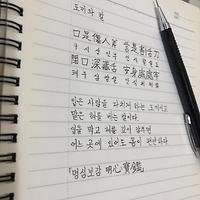 도끼와 칼
口是傷人斧 言是割舌刀
구 시 상 인 부 언 시 할 설 도
閉口深藏舌 安身處處牢
폐 구 심 장 설 안 신 처 처 뢰
입은 사람을 다치게 하는 도끼이고
말은 혀를 베는 칼이다.
입을 막고 혀를 깊이 감추면
어느 곳에 있어도 몸이 편안하다.
「명심보감 明心寶鑑」